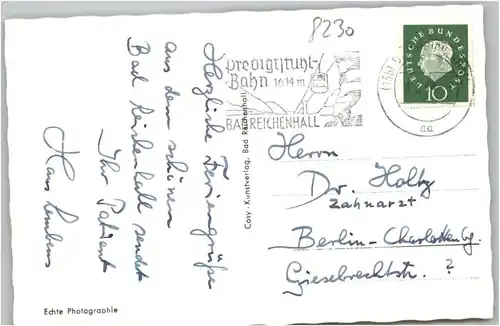 8230
Predigtstuhl-
Bahn 1614 m
BAD REICHENHALL
DEUTSCHE BUNDESPOST
10
aa
Herzliche Feriengrüße
aus dem schönen
Bad Reichenhall sendet
Ihr Patient
Hans
Cosy-Kunstverlag, Bad Reichenhall
Herrn
Dr. Holtz
Zahnarzt
Berlin-Charlottenbg.
Giesebrechtstr. ?
Echte Photographie